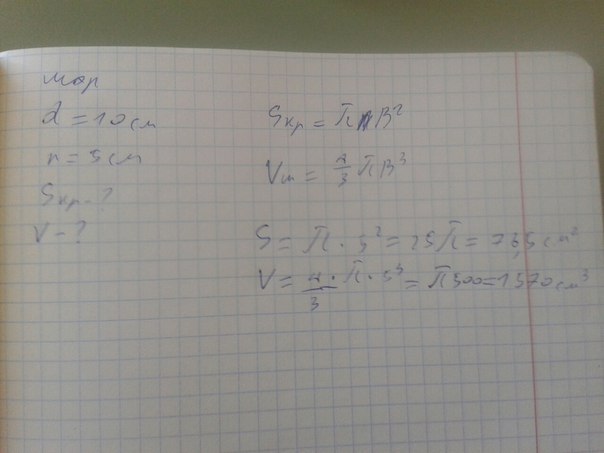 шар
d = 10 см
r = 5 см
Sкр - ?
V - ?
Sкр = ПR²
Vш = 4/3 ПR³
S = П · 5² = 25П = 78,5 см²
V = 4/3 · П · 5³ = П500 = 1570 см³